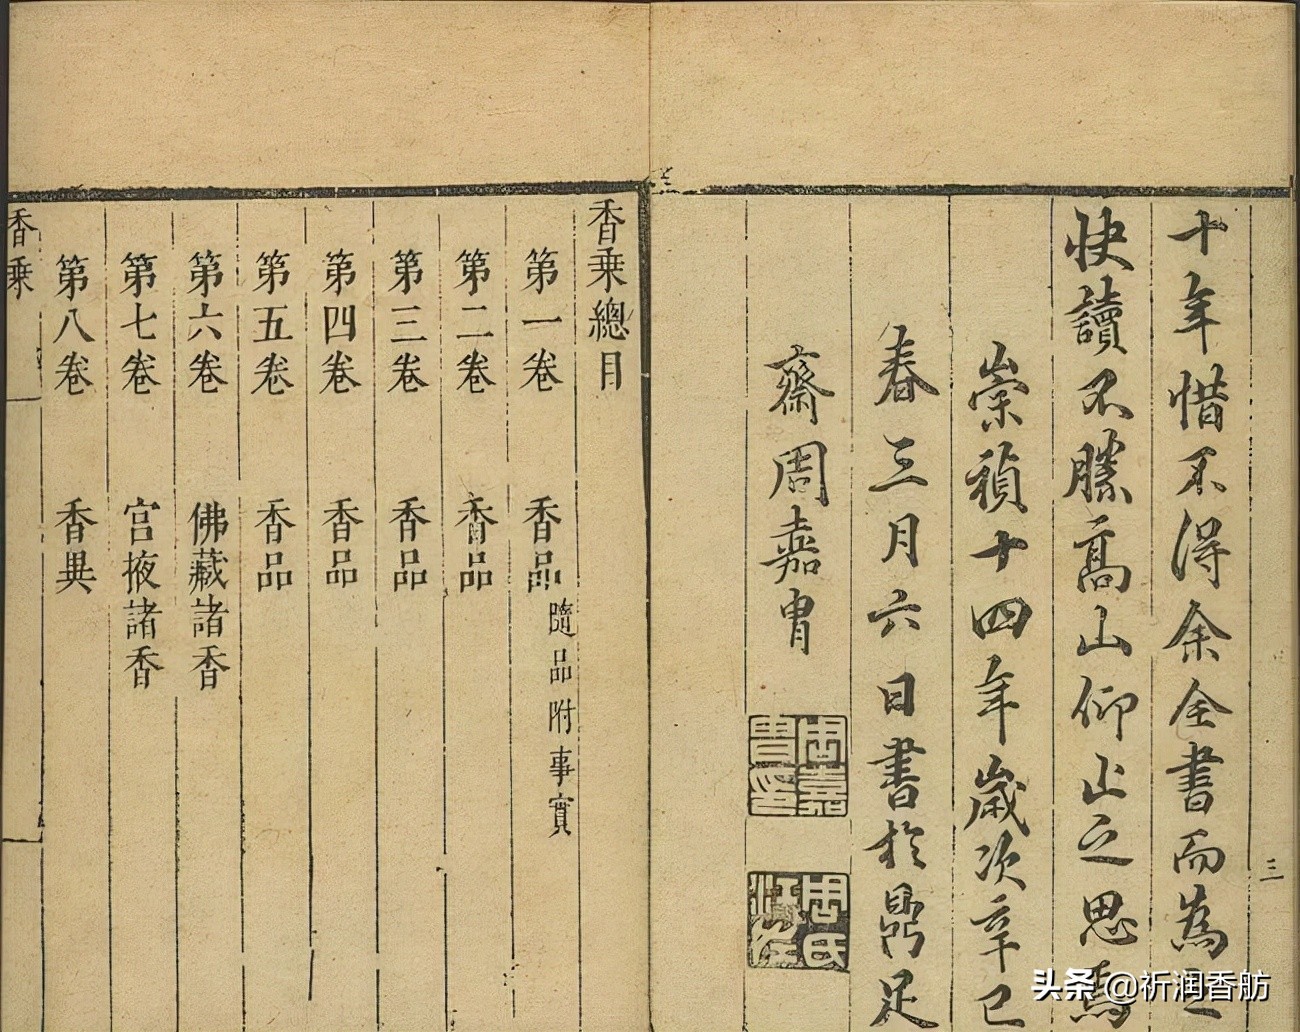 十年惜不得余全書而為之
快讀不勝高山仰止之思焉
崇禎十四年歲次辛巳
春三月六日書於鼎足
齋周嘉胄
周嘉胄印
周氏江左
三
香乘總目
第一卷 香品 隨品附事實
第二卷 香品
第三卷 香品
第四卷 香品
第五卷 香品
第六卷 佛藏諸香
第七卷 宮掖諸香
第八卷 香異
香乘
头条 @祈润香舫